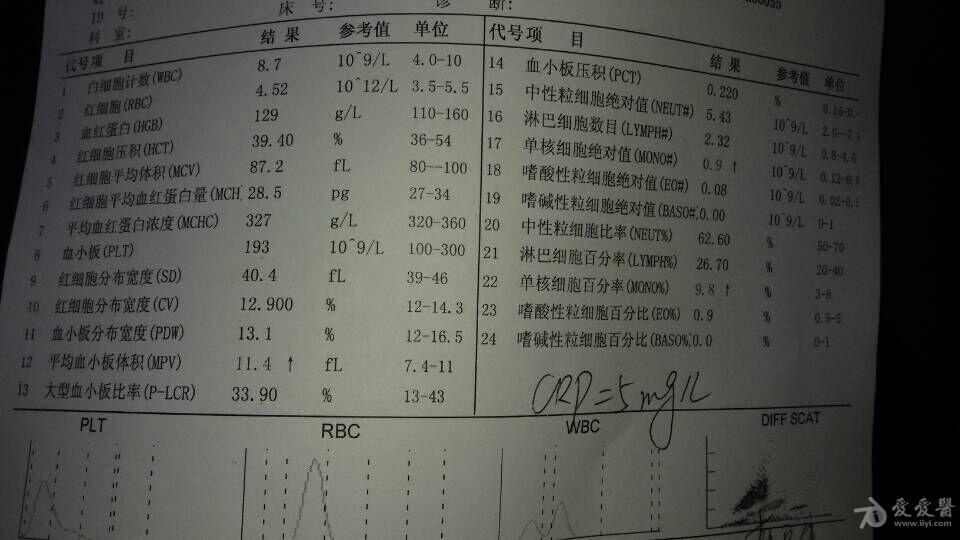 ID 号:
床 号:
诊 断:
科 室:
代号项 目 结 果 参考值 单位
1 白细胞计数(WBC) 8.7 10^9/L 4.0-10
2 红细胞(RBC) 4.52 10^12/L 3.5-5.5
3 血红蛋白(HGB) 129 g/L 110-160
4 红细胞压积(HCT) 39.40 % 36-54
5 红细胞平均体积(MCV) 87.2 fL 80--100
6 红细胞平均血红蛋白量(MCH 28.5 pg 27-34
7 平均血红蛋白浓度(MCHC) 327 g/L 320-360
8 血小板(PLT) 193 10^9/L 100-300
9 红细胞分布宽度(SD) 40.4 fL 39-46
10 红细胞分布宽度(CV) 12.900 % 12-14.3
11 血小板分布宽度(PDW) 13.1 % 12-16.5
12 平均血小板体积(MPV) 11.4 ↑ fL 7.4-11
13 大型血小板比率(P-LCR) 33.90 % 13-43
代号项 目 结 果 参考值 单位
14 血小板压积(PCT) 0.220 %
15 中性粒细胞绝对值(NEUT#) 5.43 10^9/L
16 淋巴细胞数目(LYMPH#) 2.32 10^9/L
17 单核细胞绝对值(MONO#) 0.9 ↑ 10^9/L
18 嗜酸性粒细胞绝对值(EO#) 0.08 10^9/L
19 嗜碱性粒细胞绝对值(BASO#) 0.00 10^9/L 0-1
20 中性粒细胞比率(NEUT%) 62.60 % 50-70
21 淋巴细胞百分率(LYMPH%) 26.70 % 20-40
22 单核细胞百分率(MONO%) 9.8 ↑ % 3-8
23 嗜酸性粒细胞百分比(EO%) 0.9 % 0.5-5
24 嗜碱性粒细胞百分比(BASO%) 0.0 % 0-1
CRP=5mg/L
PLT
RBC
WBC
DIFF SCAT
爱爱醫
www.iiyi.com